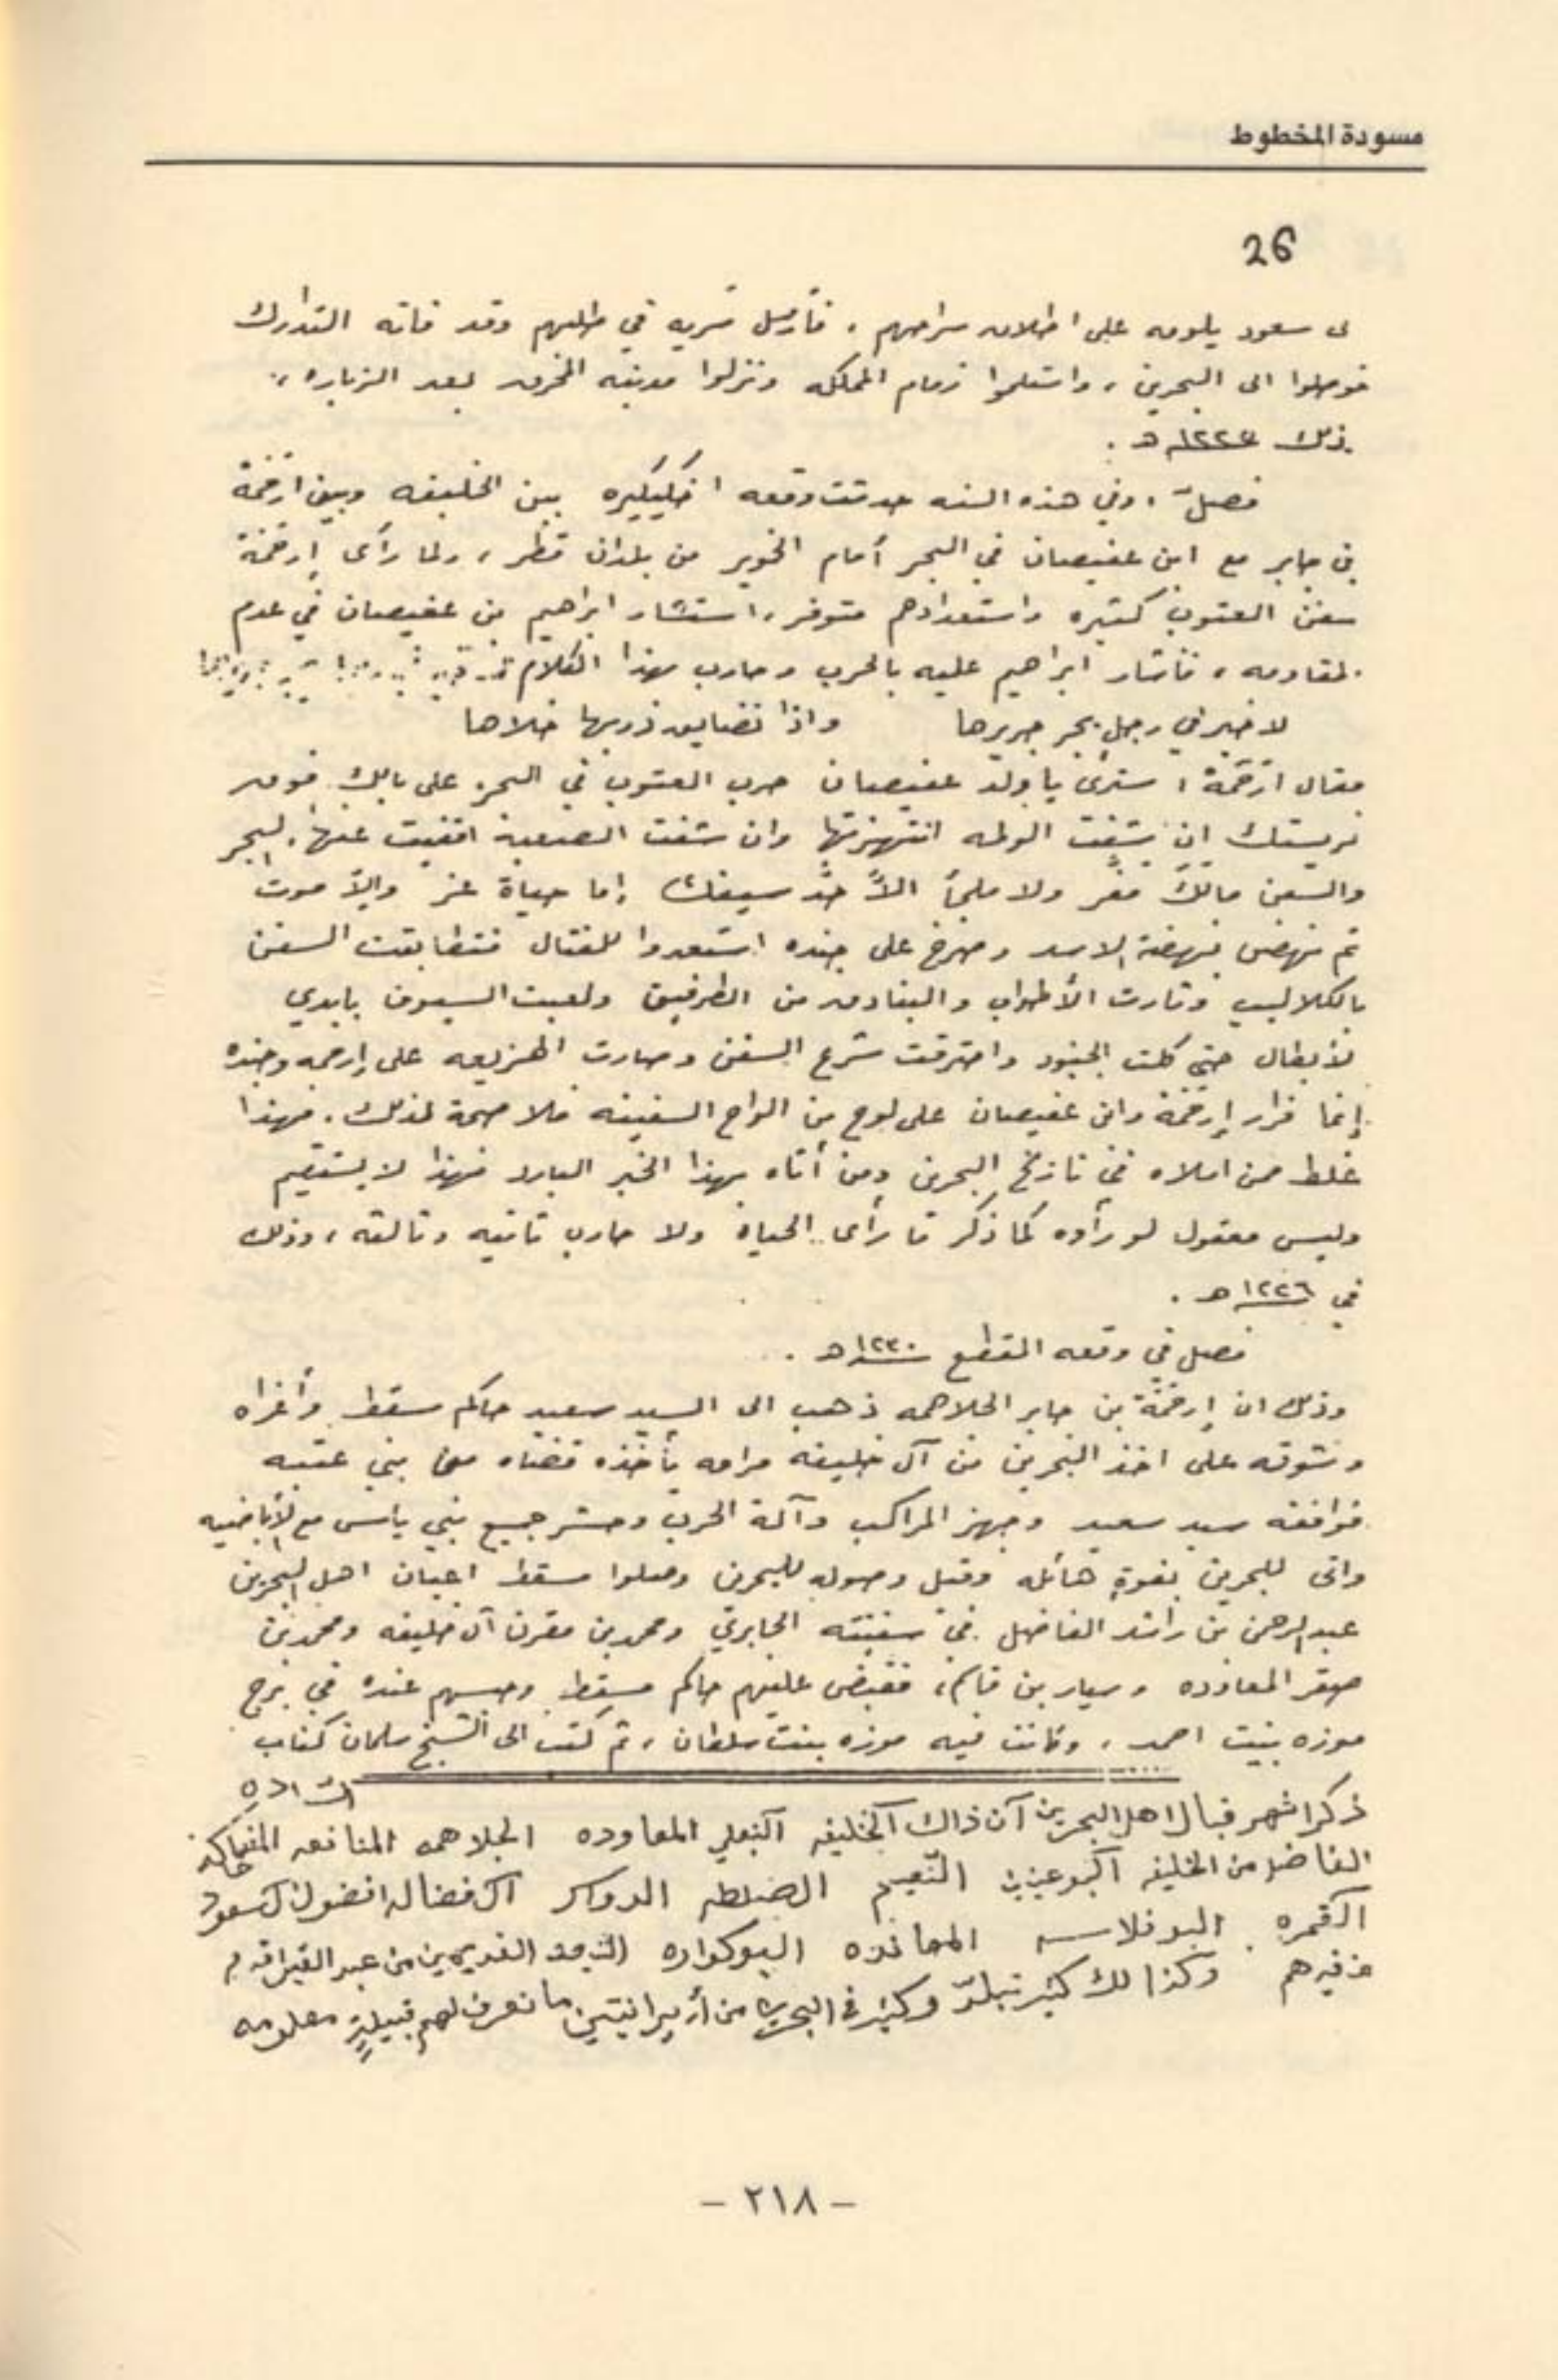 مسودة المخطوط
26
ى سعود يلومه على اطلاق سراحهم ، فأرسل سريه في طلبهم وقد فاته التدارك
فوصلوا الى البحرين ، واستلموا زمام المملكه ونزلوا مدينه المحرق بعد الزباره ،
ذلك ١٢٢٤هـ .
فصل ، وفي هذه السنه حدثت وقعه اخكيكيره بين الخليفه وبين ارحمة
بن جابر مع ابن عفيصان في البحر أمام الخوير من بلدان قطر ، ولما رأى إرحمة
سفن العتوب كثيره واستعدادهم متوفر ، استشار ابراهيم بن عفيصان في عدم
لمقاومه ، فأشار ابراهيم عليه بالحرب وحارب بهذا الكلام
لا خير في رجل يجر جريرها واذا تضايق ذربها خلاها
فقال ارحمة ، سترى يا ولد عفيصان حرب العتوب في البحر على بابك فوق
فريستك ان شفت الوله انتهزتها وان شفت الصعبه اقفيت عنها . لبحر
والسفن مالك مفر ولا ملجأ الاّ حدّ سيفك إما حياة عز وإلاّ موت
ثم نهض نهضة الاسد وصرخ على جنده استعدوا للقتال فتطابقت السفن
بالكلاليب وثارت الأطواب والبنادق من الطرفين ولعبت السيوف بايدي
لأبطال حتى كلت الجنود واحترقت شرع السفن وصارت الهزيمه على إرحمه وجنده
إنما فرار إرحمة وابن عفيصان على لوح من الواح السفينه فلا صحة لذلك . فهذا
غلط من املاه في تاريخ البحرين ومن أتاه بهذا الخبر البارد فهذا لا يستقيم
وليس معقول لو رأوه كما ذكر ما رأى الحياة ولا حارب ثانيه وثالثه ، وذلك
في ١٢٢٦هـ .
فصل في وقعه المقطع ١٢٣٠هـ .
وذلك ان إرحمة بن جابر الجلاهمه ذهب الى السيد سعيد حاكم مسقط وأغراه
وشوقه على اخذ البحرين من آل خليفه مرامه يأخذه قضاه من بني عتبه
فوافقه سيد سعيد وجهز المراكب وآلة الحرب وحشر جميع بني ياس مع الأباضيه
واتى للبحرين بقوةٍ هائله وقبل وصوله للبحرين وصلوا مسقط اعيان اهل البحرين
عبدالرحمن بن راشد الفاضل في سفينته الجابري ومحمد بن مقرن آل خليفه ومحمد بن
صقر المعاوده وسيار بن قاسم ، فقبض عليهم حاكم مسقط وحبسهم عنده في برج
موزه بنت احمد ، وكانت فيه موزه بنت سلطان ، ثم كتب الى الشيخ سلمان كتاب
الساده
ذكر اشهر قبال اهل البحرين آن ذاك آلخليفه آلبنعلي المعاوده الجلاهمه المنانعه
الفاضل من الخليفه آلبوعينين النّعيم الضلطه الدواسر آل فضاله افضول
الكمره البوفلاسه المحانده البوكواره القديمين من عبد القيس
وغيرهم وكذا لك كثير وكثير في البحرين من ما نعرف لهم قبيلةٍ معلومه
- ٢١٨ -